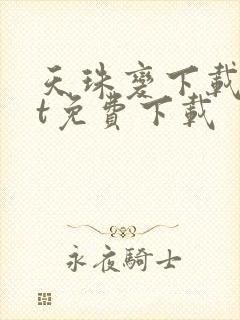 天珠變下載
t免費下載
永夜騎士